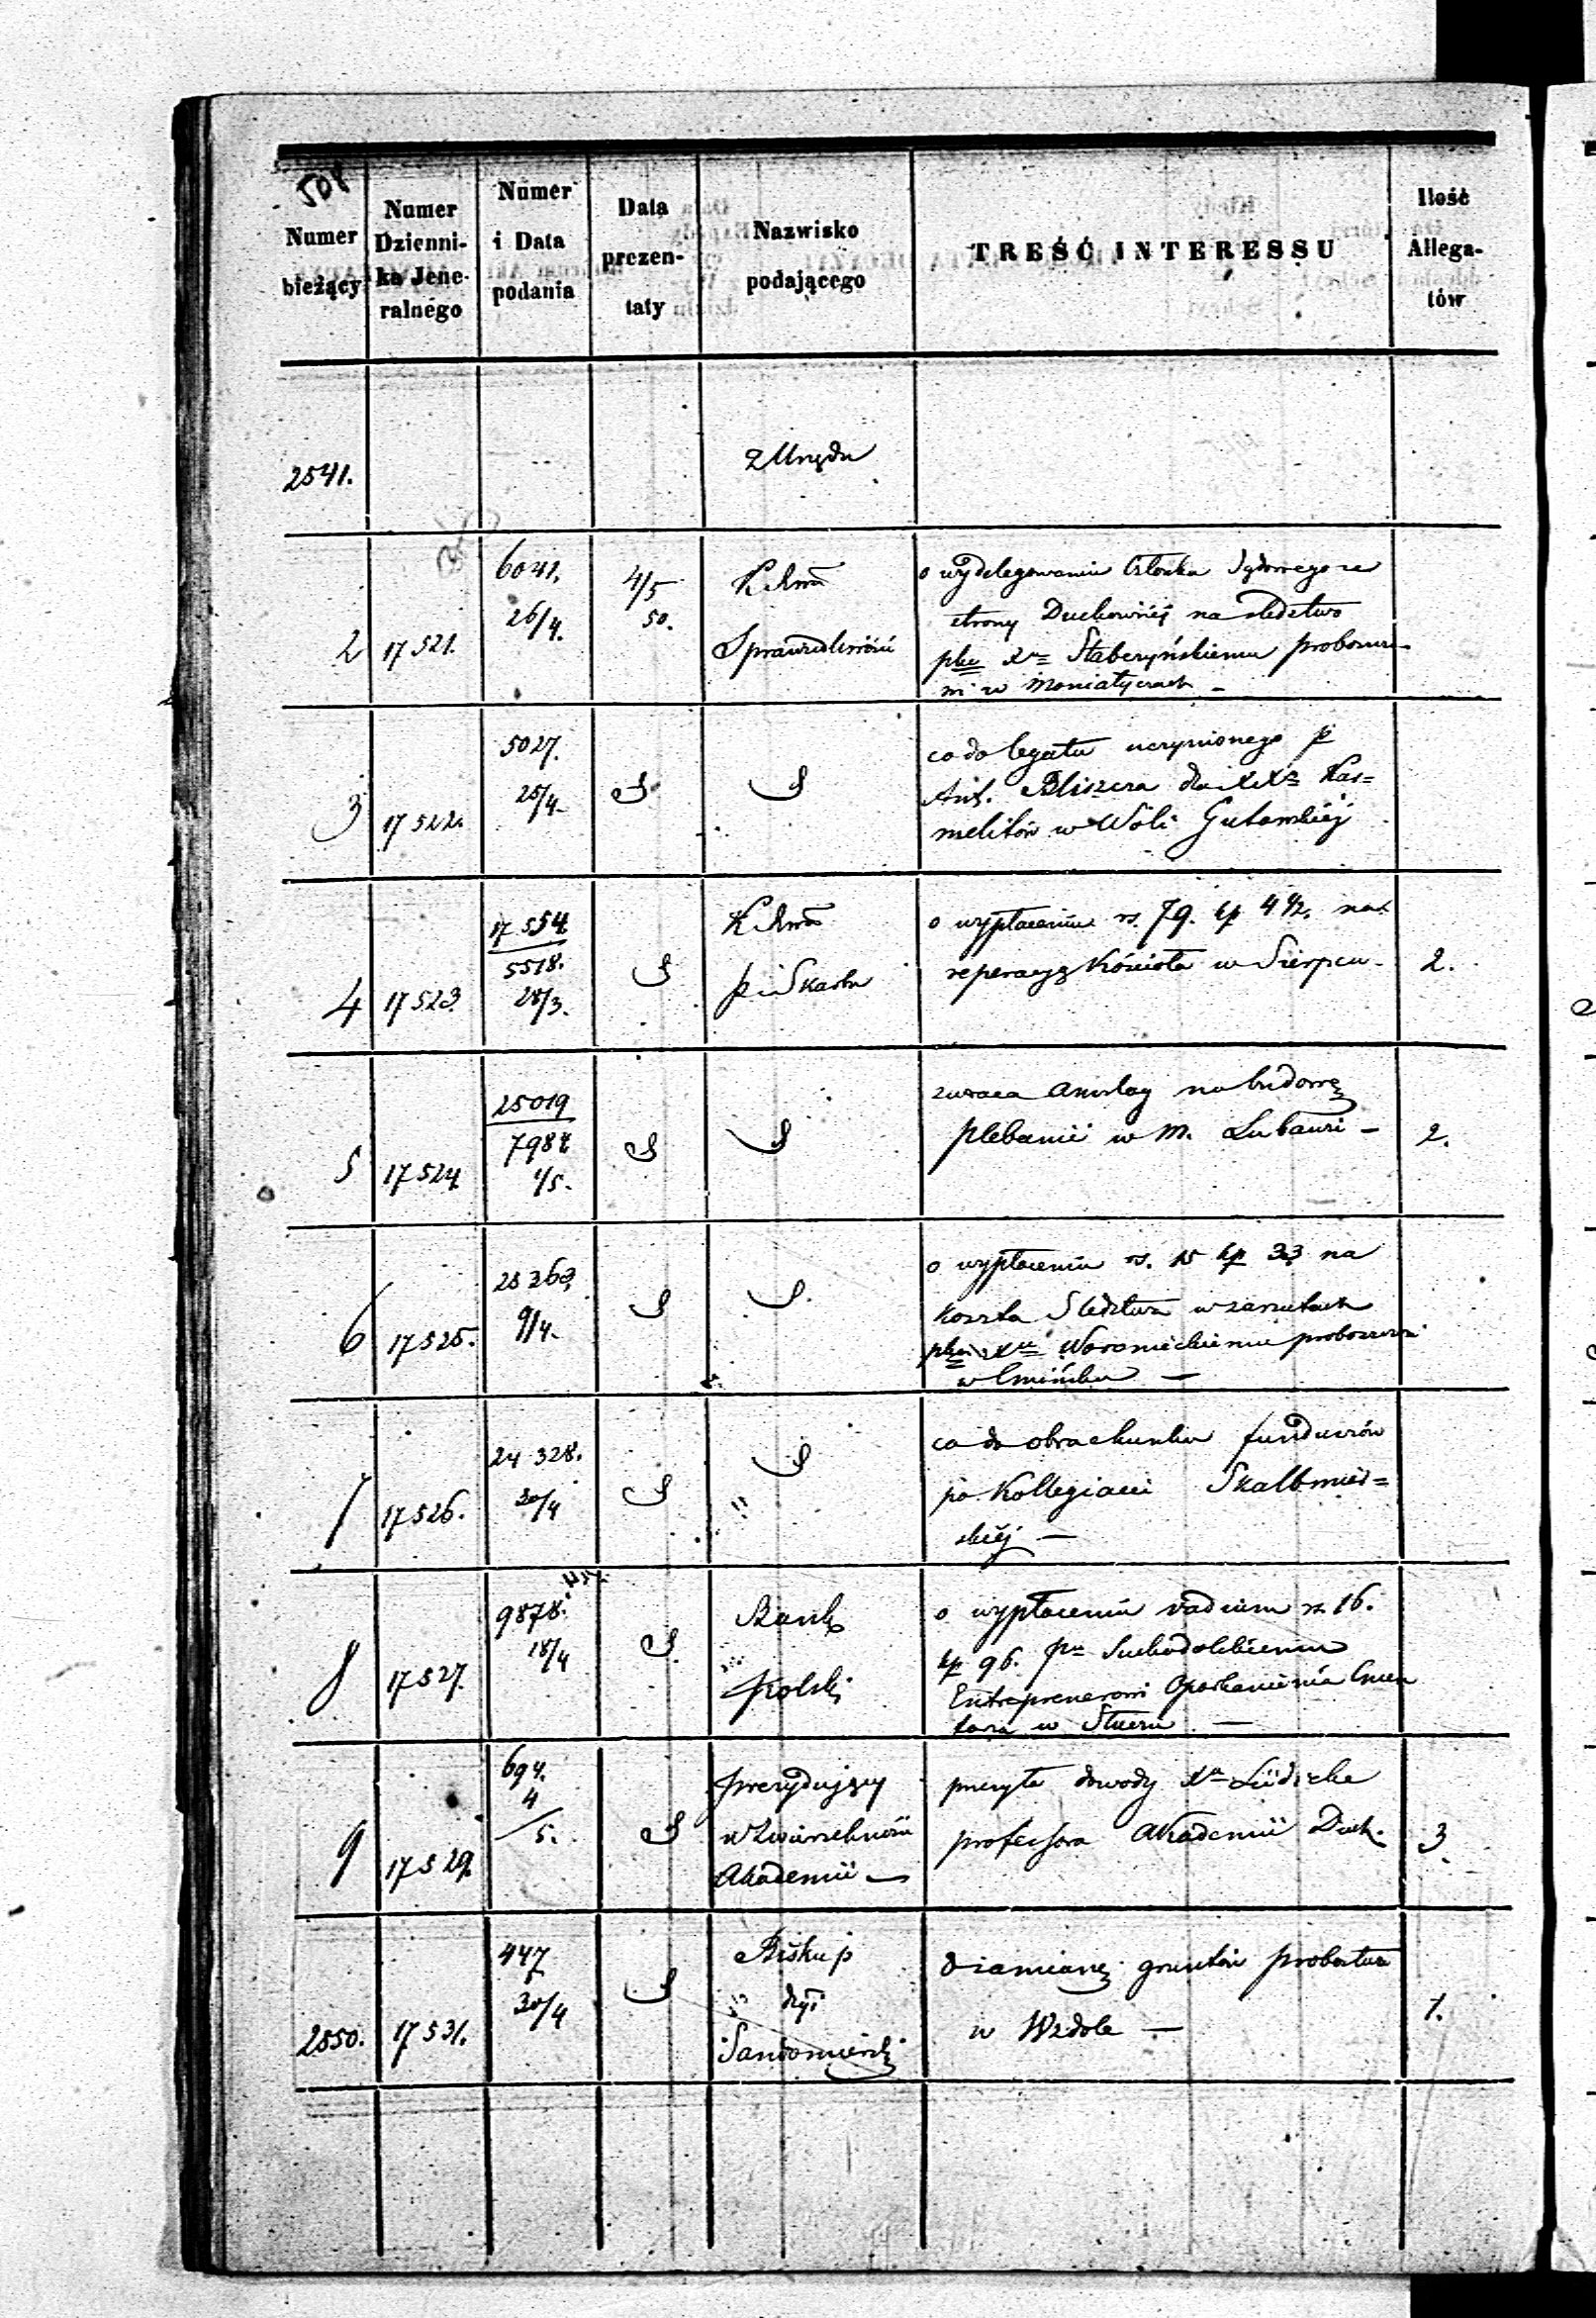 501
Numer bieżący
Numer Dzienni- ka Jene- ralnego
Numer i Data podania
Data prezen- taty
Nazwisko podającego
TREŚĆ INTERESSU
Ilość Allega- tów
2541.
z Urzędu
2
17521.
6041.
26/4.
4/5
50.
K.
Sprawiedliwości
o wydelegowanie Członka Sądowego ze
strony Duchownéj na śledztwo
plko Xu Staberzyńskiemu probosz-
wi w Moniatyczach –
3
17522.
5027.
25/4.
co do legatu uczynionego p
Ant. Bliszcza dla XX Kar=
melitów w Woli Gutowskiéj
4
17523
17554
5518.
28/3.
K.
p i Skarbu
o wypłacenie rs. 79. kp 4½. na
reperacyą kościoła w Sierpcu -
2.
5
17524
25019
7987.
1/5.
zwraca anszlag na budowę
plebanii w m. Lubawie –
2.
6
17525.
25363
9/4.
o wypłacenie rs. 15 kp 33 na
koszta Śledztwa w zarzutach
plko Xu Woronieckiemu proboszczowi
w Cmińsku —
7
17526.
24328.
30/4
co do obrachunku funduszów
po Kollegiacie Skalbmier=
skiéj —
8
17527.
9878.
18/4
Bank
Polski
o wypłacenie vadium rs. 16.
kp 96. Pu Suchodolskiemu
Entreprenerowi Oparkanienia Cmen
tarza w —
9
17529.
694.
4
/5.
Prezydujący
w Zwierzchności
Akademii —
przesyła dowody Xa Lüdicke
professora Akademii Duch.
3
2550.
17531.
447
30/4
Biskup
dyi
Sandomierski
o zamianę gruntów probostwa
w Wzdole —
1.